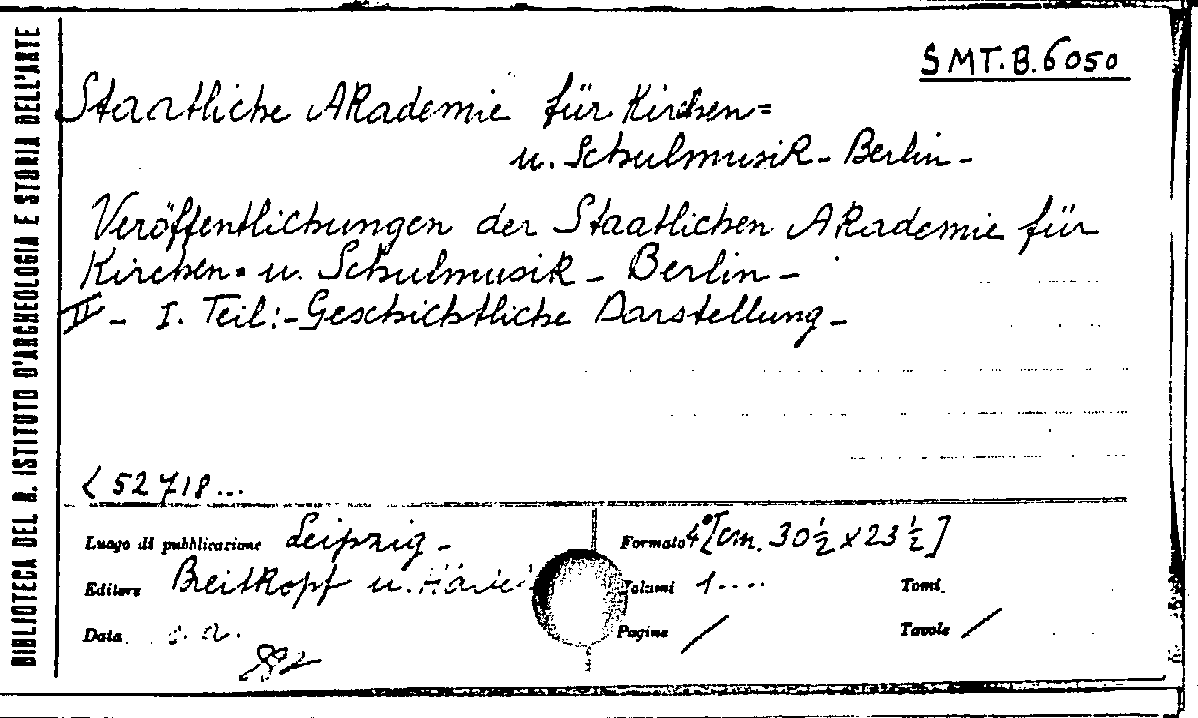 BIBLIOTECA DEL R. ISTITUTO D'ARCHEOLOGIA E STORIA DELL'ARTE
SMT.B.6050
Staatliche Akademie für Kirchen=
u. Schulmusik - Berlin -
Veröffentlichungen der Staatlichen Akademie für
Kirchen= u. Schulmusik - Berlin -
II - I. Teil:- Geschichtliche Darstellung -
52718...
Luogo di pubblicazione Leipzig - Formato 4° [cm. 30 ½ x 23 ½]
Editore Breitkopf u. Volumi 1.... Tomi
Data s. a. Pagine / Tavole /